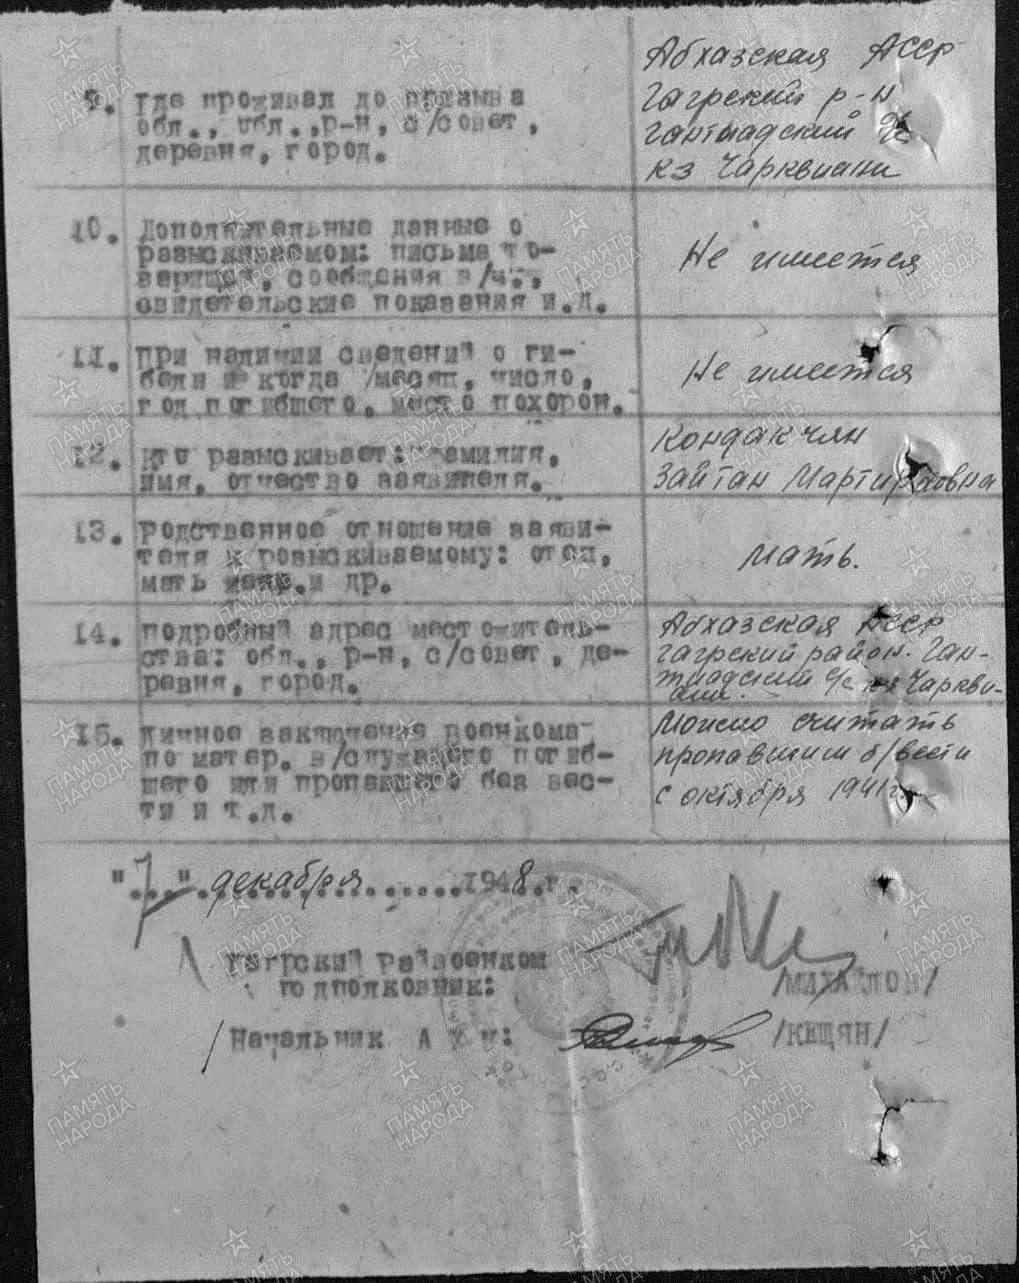 Абхазская АССР
9. где проживал до призыва
Гагрский р-н
обл., обл.,р-н, с/совет,
гантиадский
деревня, город.
кз Чарквиани
10. Дополнительные данные о
разыскиваемом: письма то-
Не имеется
верищей, сообщения в/ч.,
свидетельские показания и.д.
11. при наличии сведений о ги-
бели и когда /месяц, число,
Не имеется
год погибшего, место похорон.
12. кто разыскивает: фамилия,
Кондакчян
имя, отчество заявителя.
Зайтан Мартиросовна
13. Родственное отношение заяви-
теля к розыскиваемому: отец,
мать.
мать и др.
14. подробный адрес местожитель-
Абхазская АССР
ства: обл., р-н, с/совет, де-
гагрский район. Ган-
ревня, город.
тиадский с/с кз Чаркви-
ани.
15. личное заключение военкома
Можно считать
по матер. в/служащего погиб-
пропавшим б/вести
шего или пропавшего без вес-
с октября 1941 г.
ти и т.д.
"7" декабря 1948.г.
Гагрский райвоенком
подполковник: /МИХАЙЛОВ/
/Начальник /КЕЩЯН/
ПАМЯТЬ
НАРОДА